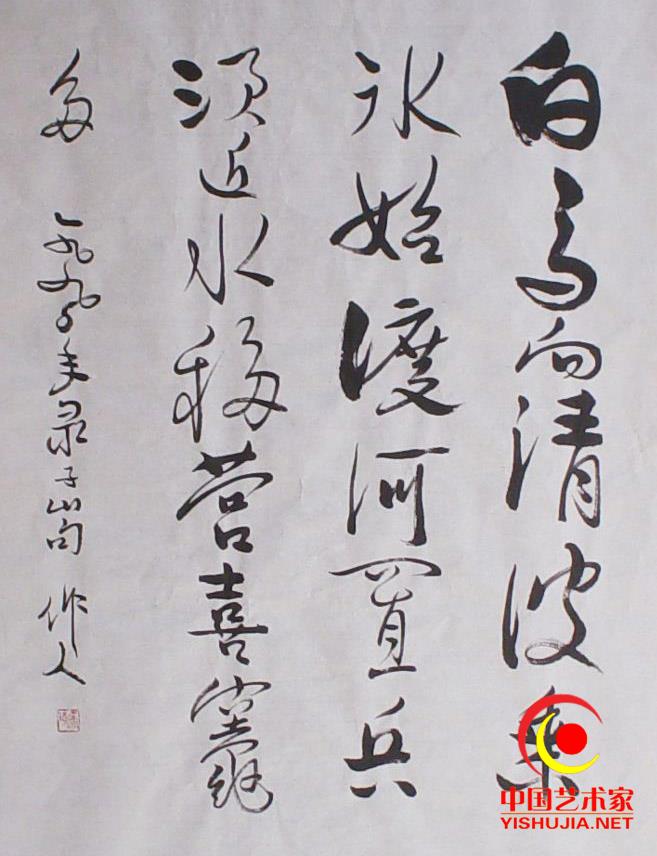 白马向清波乘
冰始渡河置兵
须近水移营喜竈
多 一九九〇年录子山句 作人
中国艺术家
YISHUJIA.NET